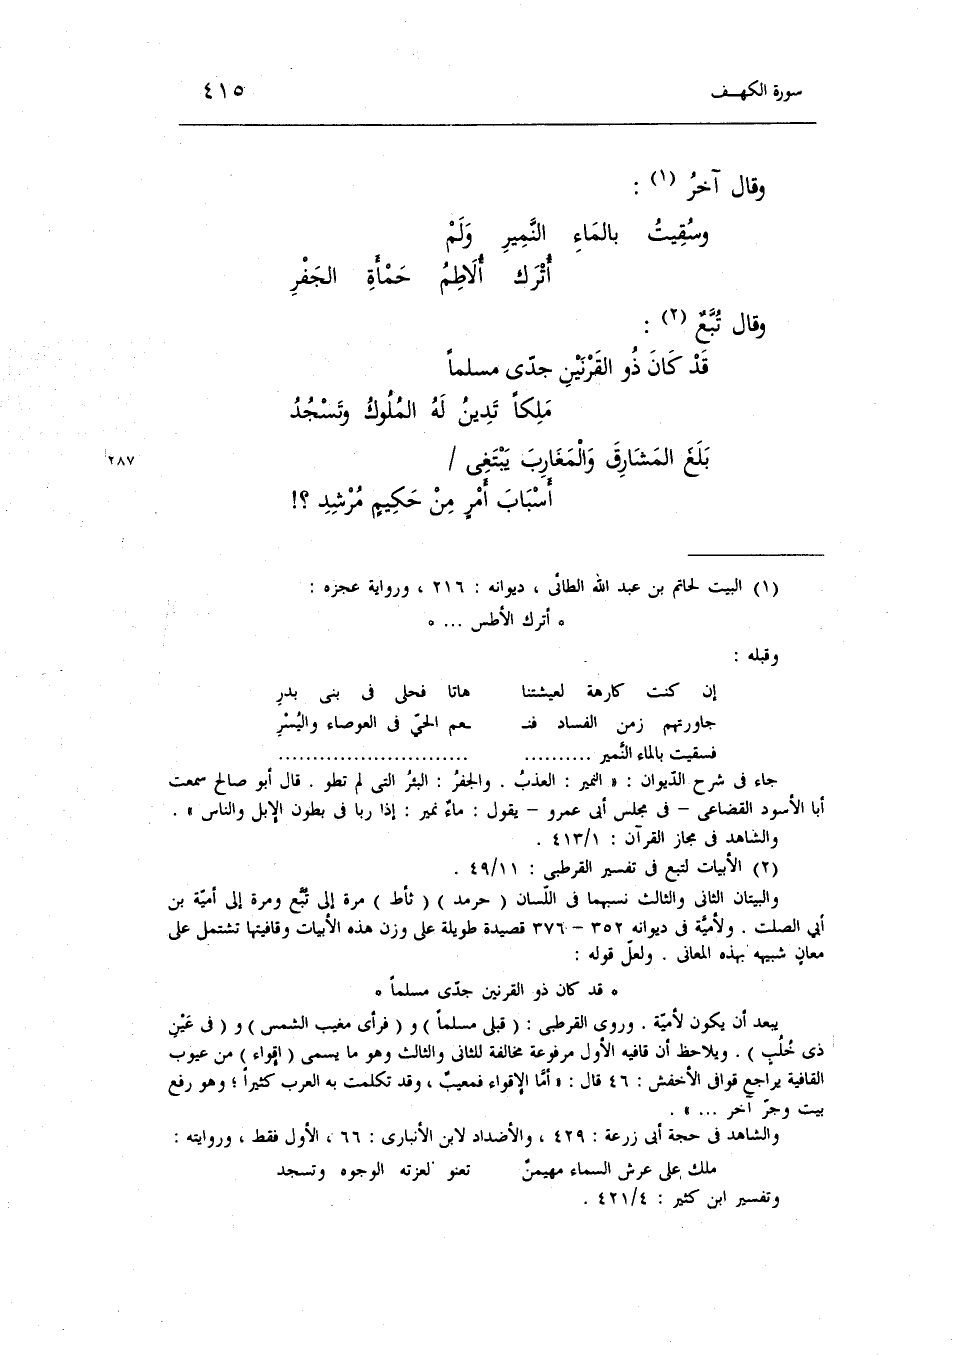 سورة الكهـف ٤١٥
وقال آخرُ (١) :
وسُقِيتُ بالمَاءِ النَّمِيرِ وَلَمْ
أُتْرَك أُلَاطِمُ حَمْأَةِ الجَفْرِ
وقال تُبَّعٌ (٢) :
قَدْ كَانَ ذُو القَرْنَيْنِ جدّى مسلماً
مَلِكاً تَدِينُ لَهُ المُلُوكُ وتَسْجُدُ
بَلَغَ المَشَارِقَ وَالْمَغَارِبَ يَبْتَغِى / ٢٨٧
أَسْبَابَ أَمْرٍ مِنْ حَكِيمٍ مُرْشِدِ ؟!
(١) البيت لحاتم بن عبد الله الطائى ، ديوانه : ٢١٦ ، ورواية عجزه :
* أترك الأطس ... *
وقبله :
إن كنت كارهة لعيشتنا هاتا فحلى فى بنى بدرِ
جاورتهم زمن الفساد فنـ ـعم الحىّ فى العوصاء واليُسْرِ
فسقيت بالماء النَّمير .......... ...........................
جاء فى شرح الدّيوان : « النمير : العذبُ . والجفرُ : البئرُ التى لم تطو . قال أبو صالح سمعت
أبا الأسود القضاعى – فى مجلس أبى عمرو – يقول : ماءٌ نمير : إذا ربا فى بطون الإبل والناس » .
والشاهد فى مجاز القرآن : ٤١٣/١ .
(٢) الأبيات لتبع فى تفسير القرطبى : ٤٩/١١ .
والبيتان الثانى والثالث نسبهما فى اللّسان ( حرمد ) ( ثأط ) مرة إلى تُبَّع ومرة إلى أميّة بن
أبي الصلت . ولأميَّة فى ديوانه ٣٥٢ – ٣٧٦ قصيدة طويلة على وزن هذه الأبيات وقافيتها تشتمل على
معانٍ شبيهه بهذه المعانى . ولعلّ قوله :
* قد كان ذو القرنين جدّى مسلماً *
يبعد أن يكون لأميّة . وروى القرطبى : ( قبلى مسلماً ) و ( فرأى مغيب الشمس ) و ( فى عَيْنِ
ذى خُلُبٍ ) . ويلاحظ أن قافيه الأول مرفوعة مخالفة للثانى والثالث وهو ما يسمى ( إقواء ) من عيوب
القافية يراجع قوافى الأخفش : ٤٦ قال : « أمَّا الإقواء فمعيبٌ ، وقد تكلمت به العرب كثيراً ؛ وهو رفع
بيت وجرّ آخر ... » .
والشاهد فى حجة أبى زرعة : ٤٢٩ ، والأضداد لابن الأنبارى : ٦٦ ، الأول فقط ، وروايته :
ملك على عرش السماء مهيمنٌ تعنو لعزته الوجوه وتسجد
وتفسير ابن كثير : ٤٢١/٤ .